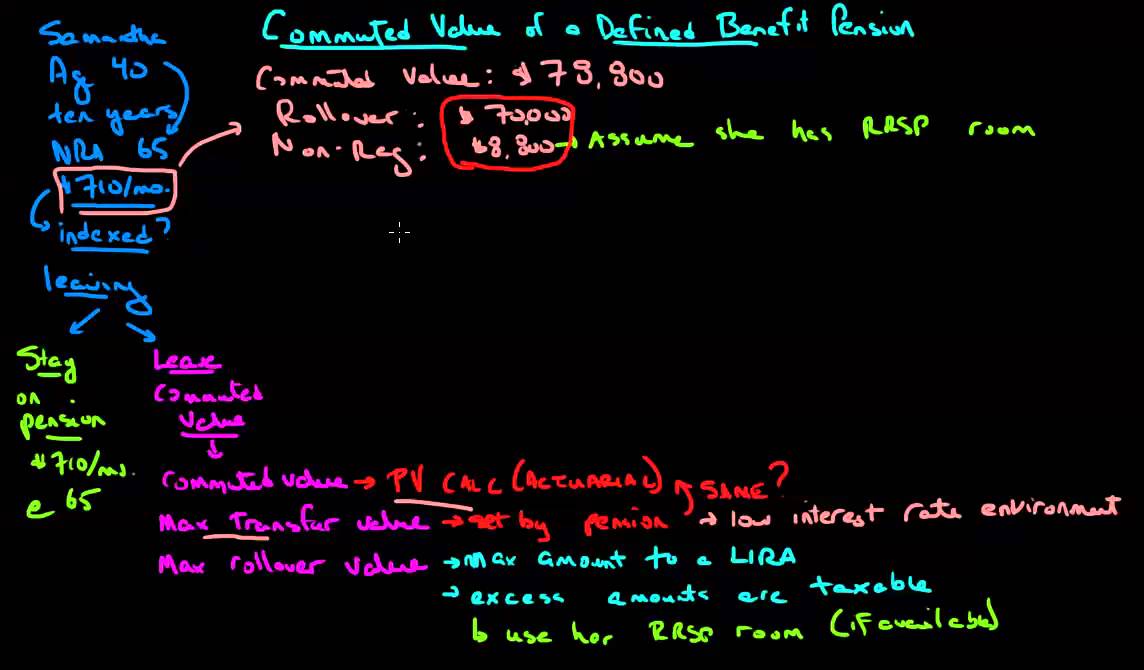 Commuted Value of a Defined Benefit Pension
Samantha
Ag 40
ten years
NRA 65
$710/mo.
indexed?
leaving
Commuted Value: $78,800
Rollover: $70,000
Non-Reg: $8,800 → Assume she has RRSP room
Stay
on
pension
$710/mo.
@ 65
Leave
Commuted
Value
Commuted value → PV CALC (ACTUARIAL) SAME?
Max Transfer value → set by pension → low interest rate environment
Max rollover value → Max amount to a LIRA
→ excess amounts are taxable
↳ use her RRSP room (if available)